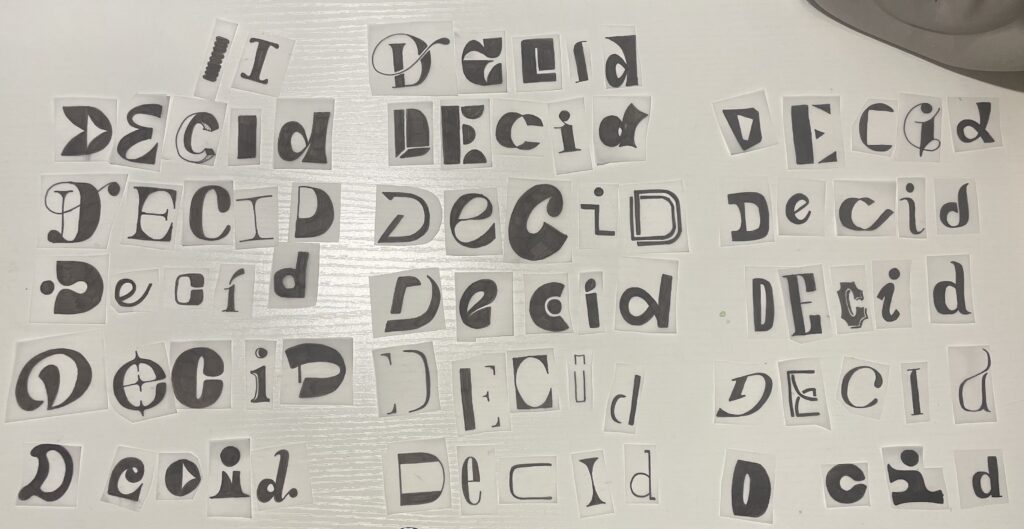 I I DeCid
DECId DECid DECid
DECID DeCiD Decid
Decíd Decid DECid
DeCiD DECid DECId
Decid. DeCId D cid